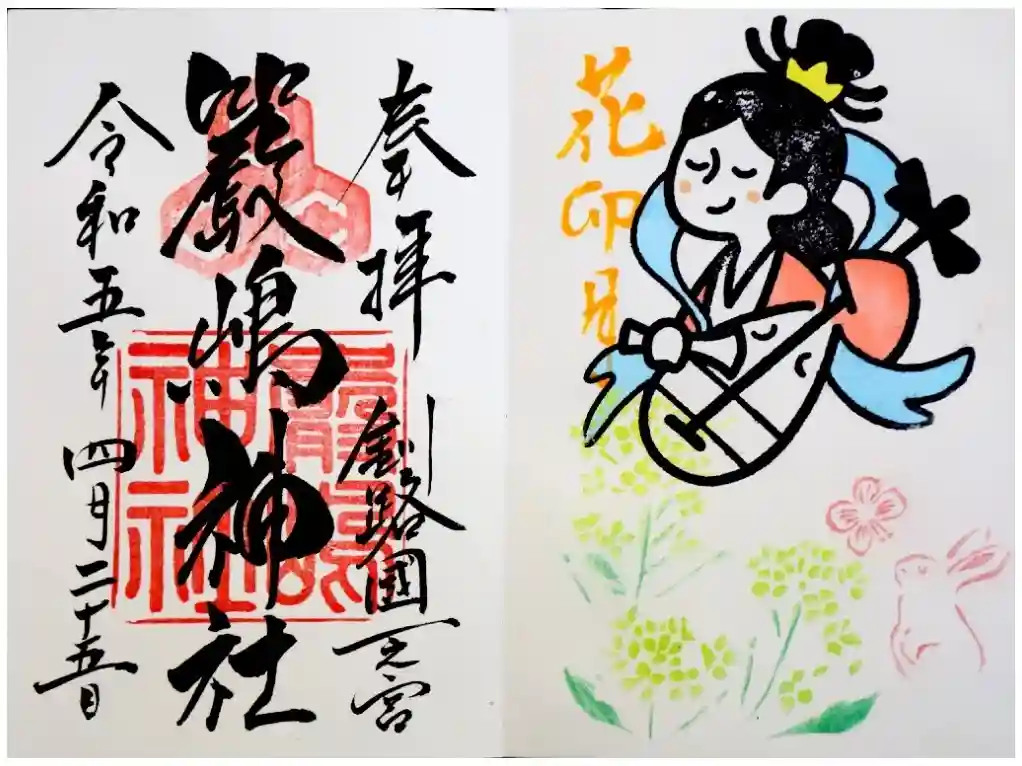 花卯月
奉拝 釧路國一之宮
巖嶋神社
令和五年 四月二十五日